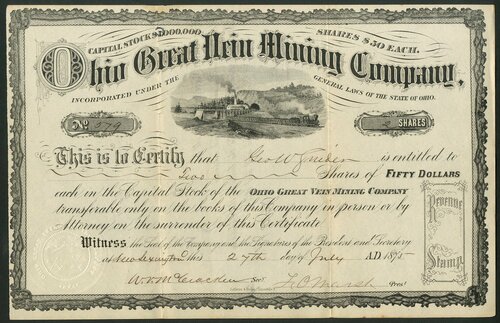 CAPITAL STOCK $1000,000 SHARES $50 EACH.
Ohio Great Vein Mining Company,
INCORPORATED UNDER THE GENERAL LAWS OF THE STATE OF OHIO.
No 179 2 SHARES
This is to Certify that Geo W is entitled to
Two Shares of FIFTY DOLLARS
each in the Capital Stock of the OHIO GREAT VEIN MINING COMPANY
transferable only on the books of this Company in person or by
Attorney on the surrender of this Certificate.
Witness the Seal of the Company and the Signatures of the President and Secretary
at New Lexington this 27th day of July A.D. 1875
W. R. McCracken Secy L. C. Marsh Prest
Revenue
Stamp